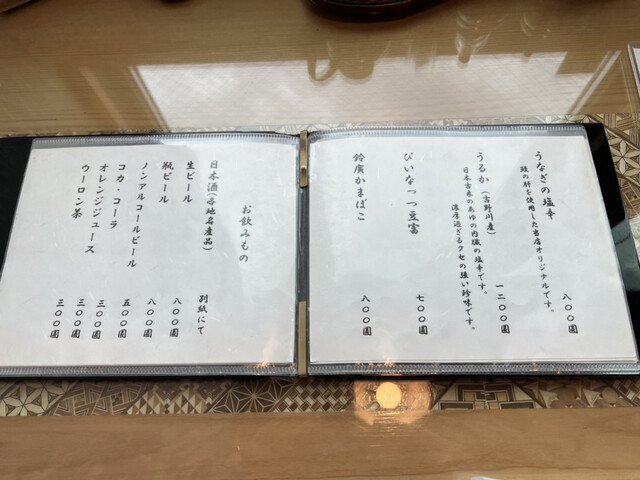 うなぎの塩辛 八〇〇圓
鰻の肝を使用した当店オリジナルです。
うるか（吉野川産） 一二〇〇圓
日本古来のあゆの内臓の塩辛です。
濃厚過ぎるクセの強い珍味です。
ぴいなっつ豆富 七〇〇圓
鈴廣かまぼこ 八〇〇圓
お飲みもの
日本酒（各地名産品） 別紙にて
生ビール 八〇〇圓
瓶ビール 八〇〇圓
ノンアルコールビール 五〇〇圓
コカ・コーラ 三〇〇圓
オレンジジュース 三〇〇圓
ウーロン茶 三〇〇圓